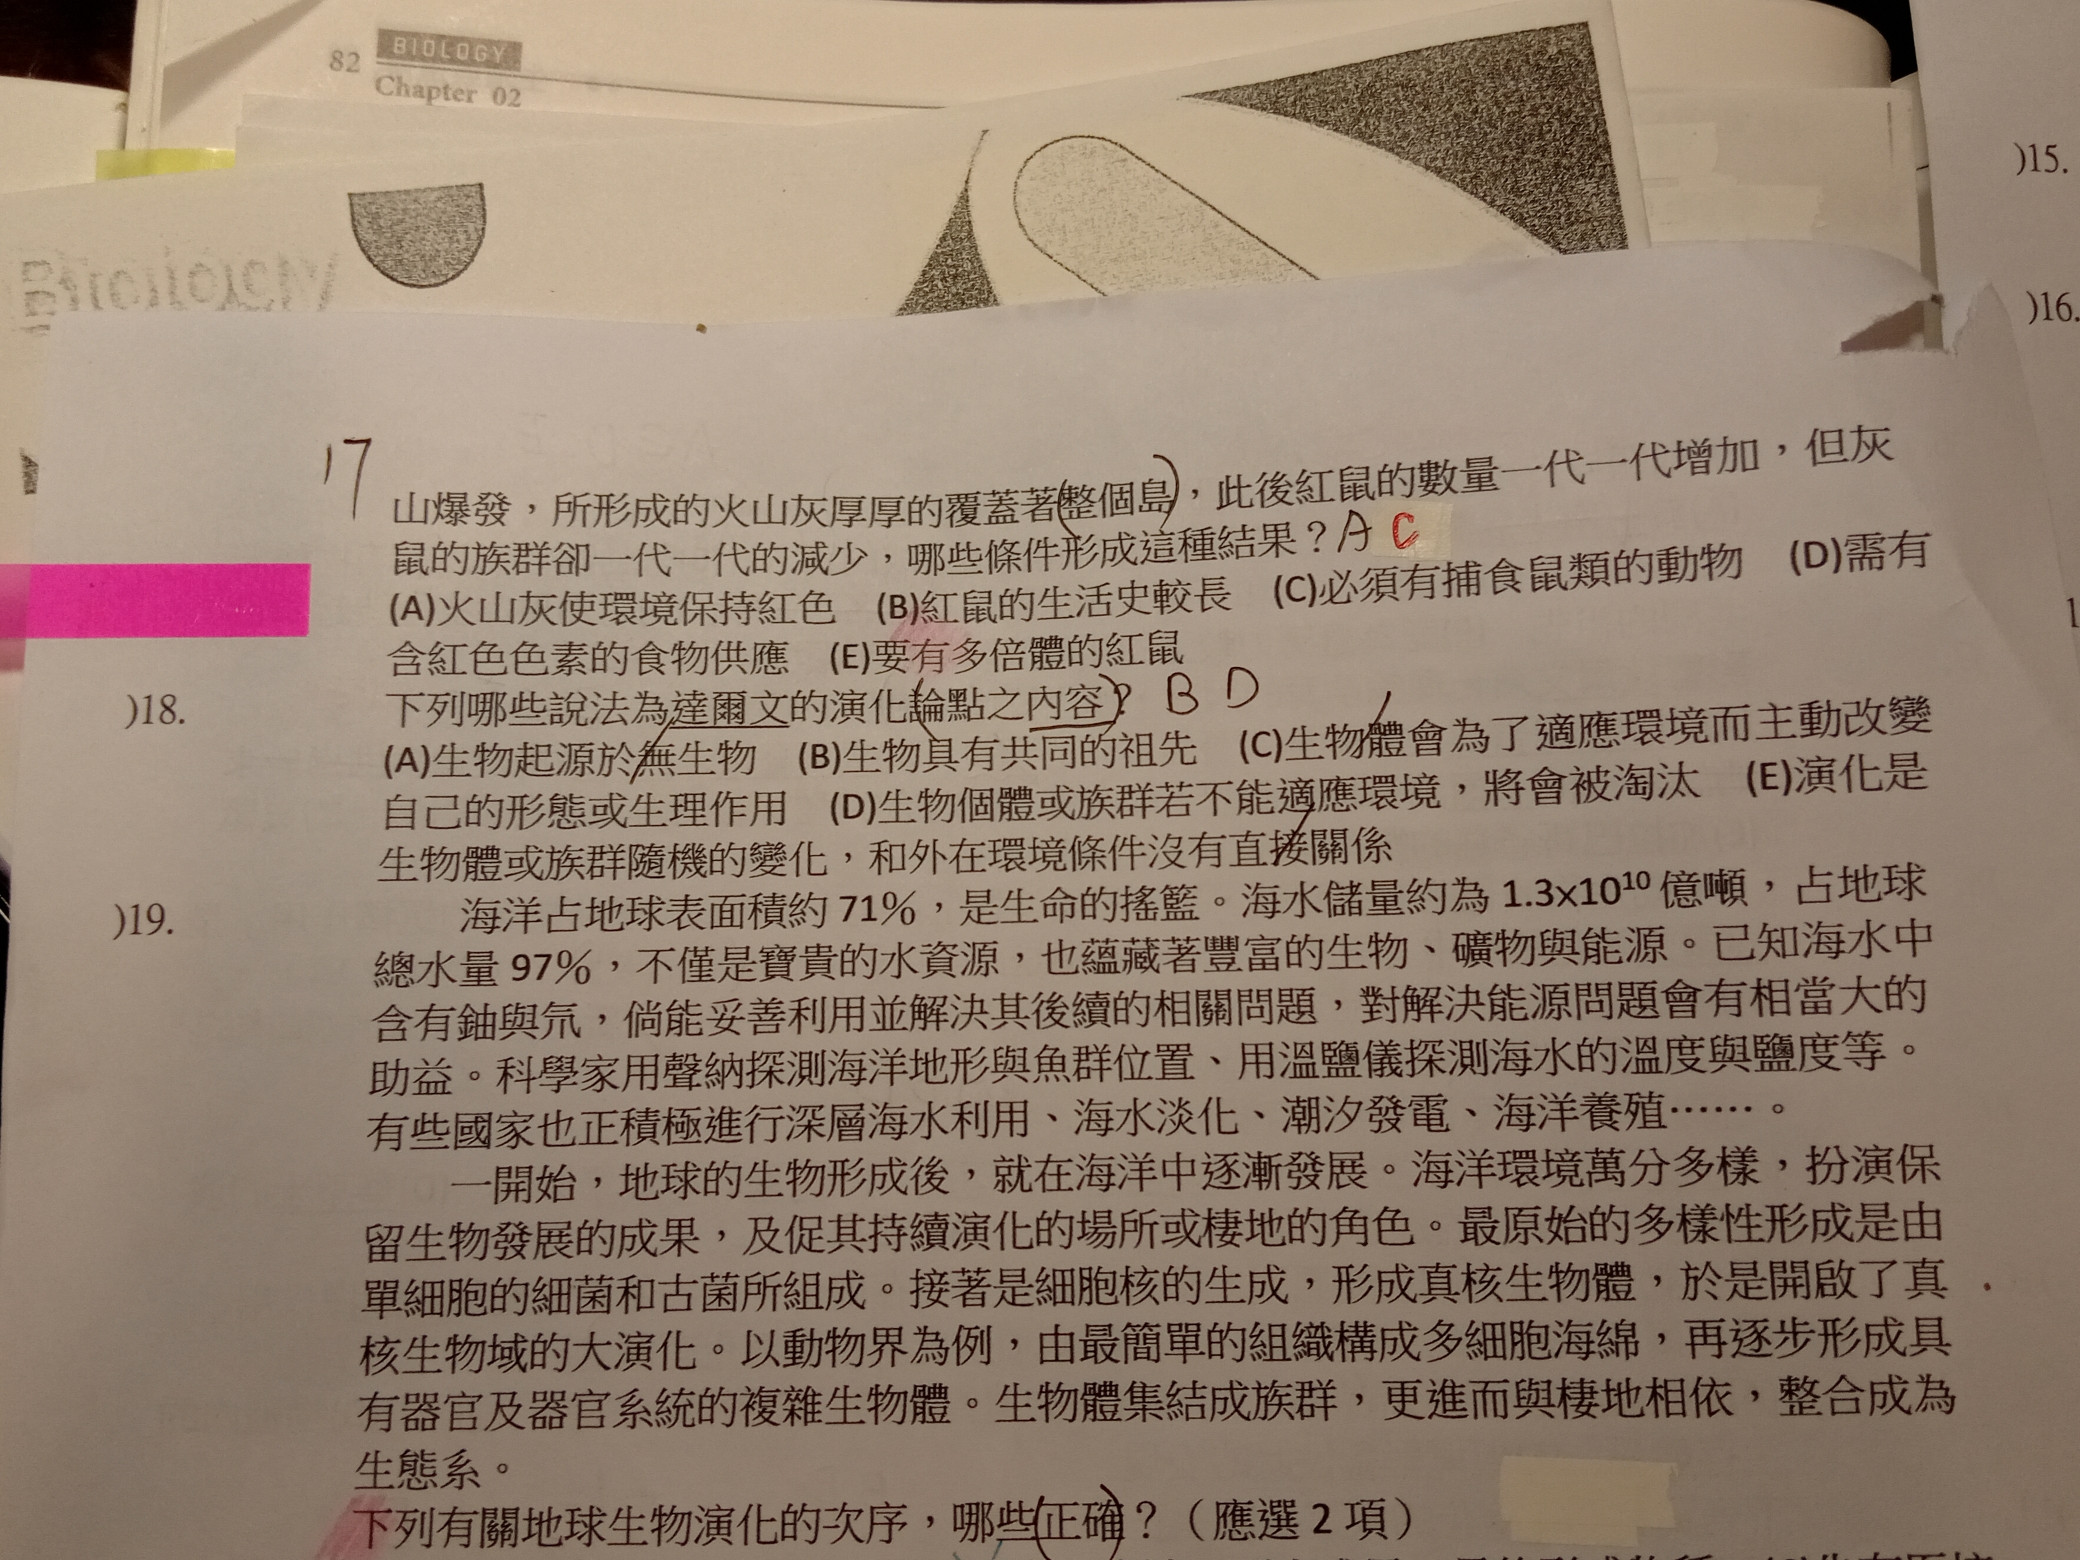 82 BIOLOGY
Chapter 02
)15.
)16.
17
山爆發，所形成的火山灰厚厚的覆蓋著(整個島)，此後紅鼠的數量一代一代增加，但灰
鼠的族群卻一代一代的減少，哪些條件形成這種結果？A C
(A)火山灰使環境保持紅色 (B)紅鼠的生活史較長 (C)必須有捕食鼠類的動物 (D)需有
含紅色色素的食物供應 (E)要有多倍體的紅鼠
)18. 下列哪些說法為達爾文的演化(論點之內容)？B D
(A)生物起源於無生物 (B)生物具有共同的祖先 (C)生物體會為了適應環境而主動改變
自己的形態或生理作用 (D)生物個體或族群若不能適應環境，將會被淘汰 (E)演化是
生物體或族群隨機的變化，和外在環境條件沒有直接關係
)19. 海洋占地球表面積約 71%，是生命的搖籃。海水儲量約為 1.3x10¹⁰ 億噸，占地球
總水量 97%，不僅是寶貴的水資源，也蘊藏著豐富的生物、礦物與能源。已知海水中
含有鈾與氘，倘能妥善利用並解決其後續的相關問題，對解決能源問題會有相當大的
助益。科學家用聲納探測海洋地形與魚群位置、用溫鹽儀探測海水的溫度與鹽度等。
有些國家也正積極進行深層海水利用、海水淡化、潮汐發電、海洋養殖……。
一開始，地球的生物形成後，就在海洋中逐漸發展。海洋環境萬分多樣，扮演保
留生物發展的成果，及促其持續演化的場所或棲地的角色。最原始的多樣性形成是由
單細胞的細菌和古菌所組成。接著是細胞核的生成，形成真核生物體，於是開啟了真
核生物域的大演化。以動物界為例，由最簡單的組織構成多細胞海綿，再逐步形成具
有器官及器官系統的複雜生物體。生物體集結成族群，更進而與棲地相依，整合成為
生態系。
下列有關地球生物演化的次序，哪些(正確)？（應選 2 項）